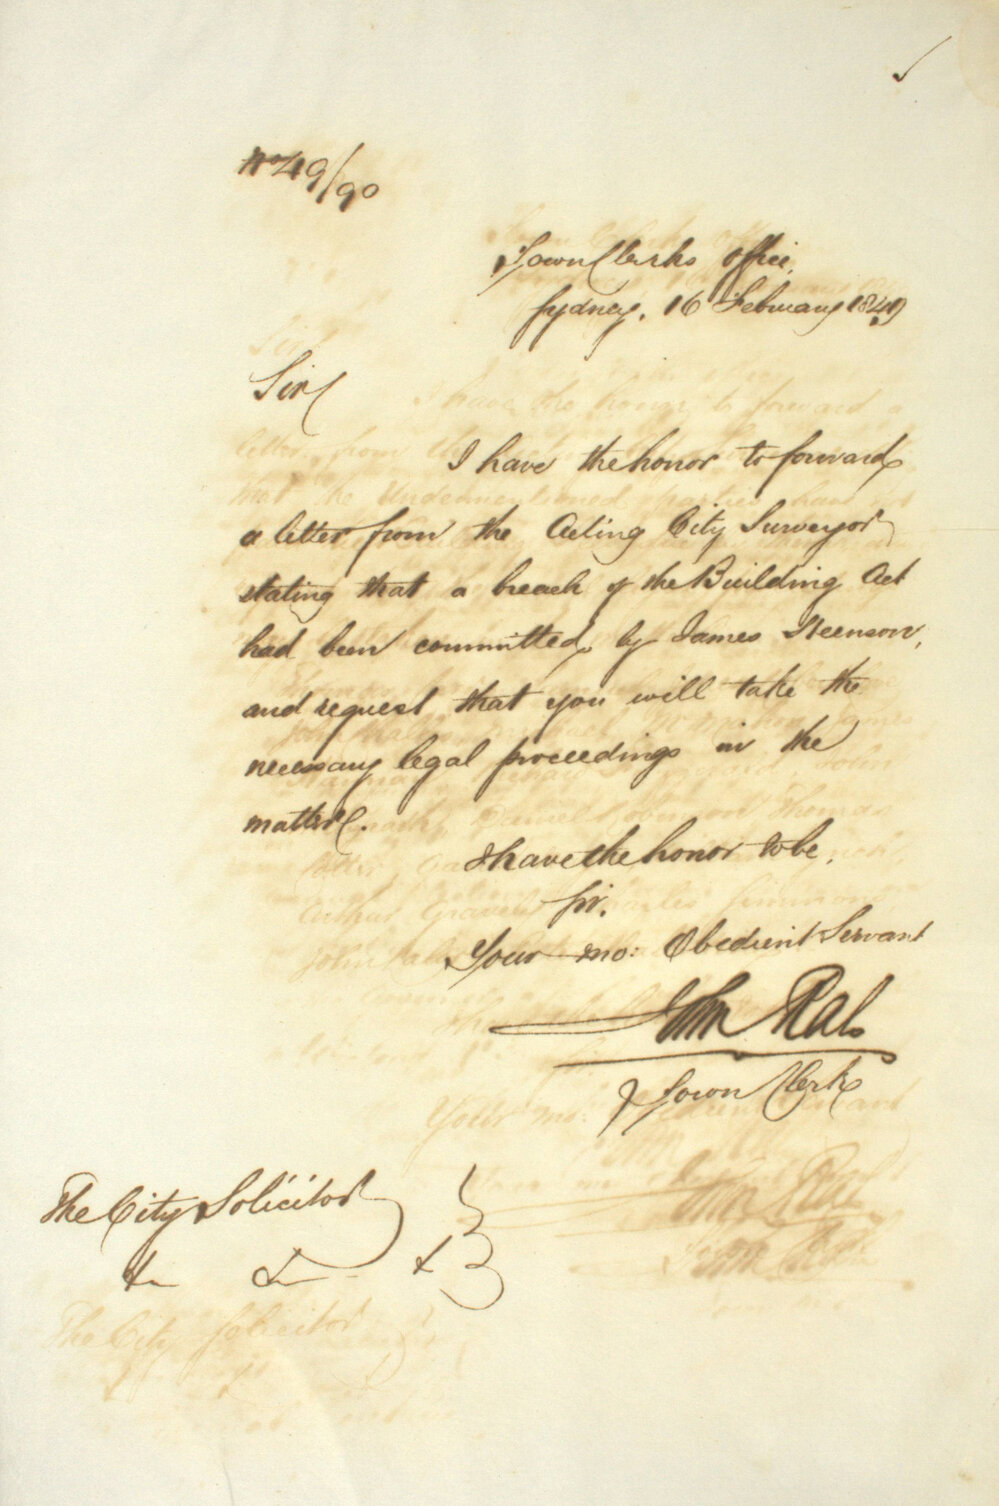 No 49/90
Town Clerks Office,
Sydney, 16 February 1849
Sir
I have the honor to forward
a letter from the Acting City Surveyor
stating that a breach of the Building Act
had been committed by James
and request that you will take the
necessary legal proceedings in the
matter.
I have the honor to be,
Sir,
Your mo: Obedient Servant
John Rae
Town Clerk
The City Solicitor